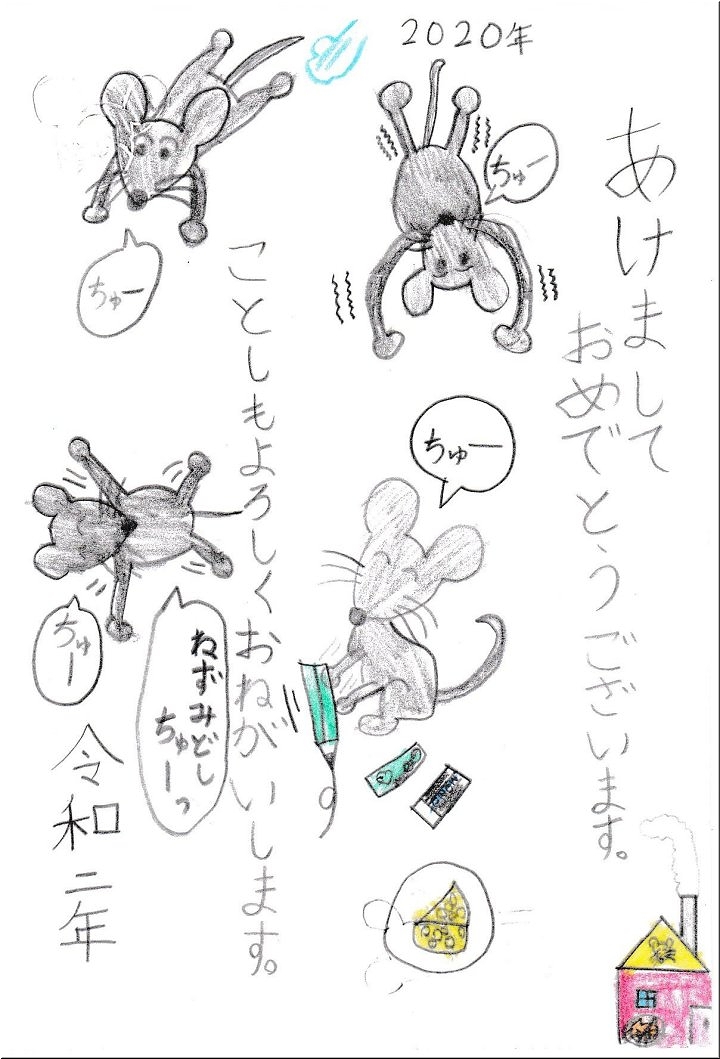 2020年
あけまして
おめでとうございます。
ちゅー
ちゅー
ことしもよろしくおねがいします。
ちゅー
ちゅー
ねずみどし
ちゅーっ
令和二年
MONO